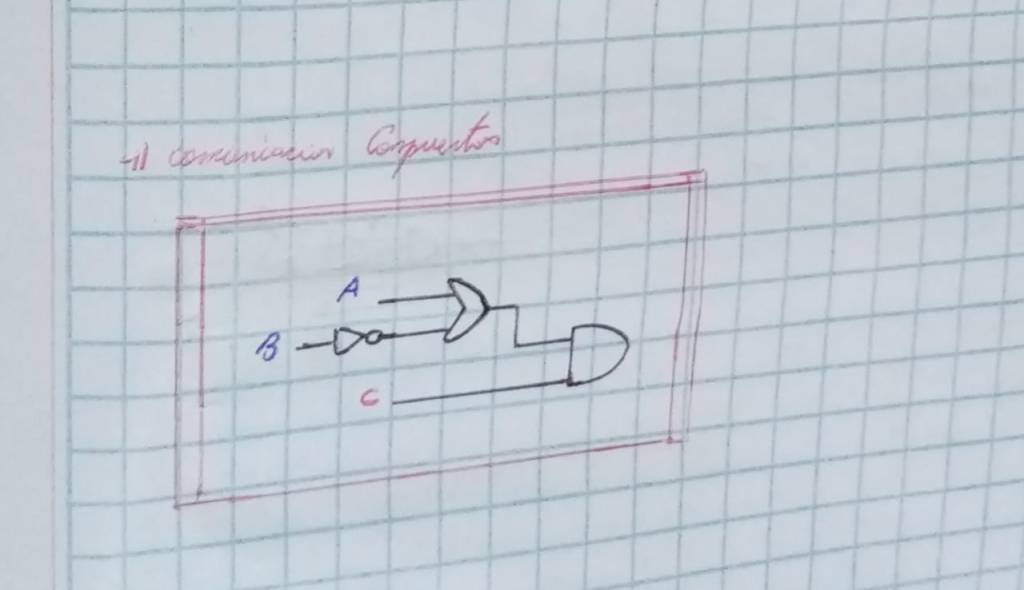 comuniacion Compuertas
A
B
C